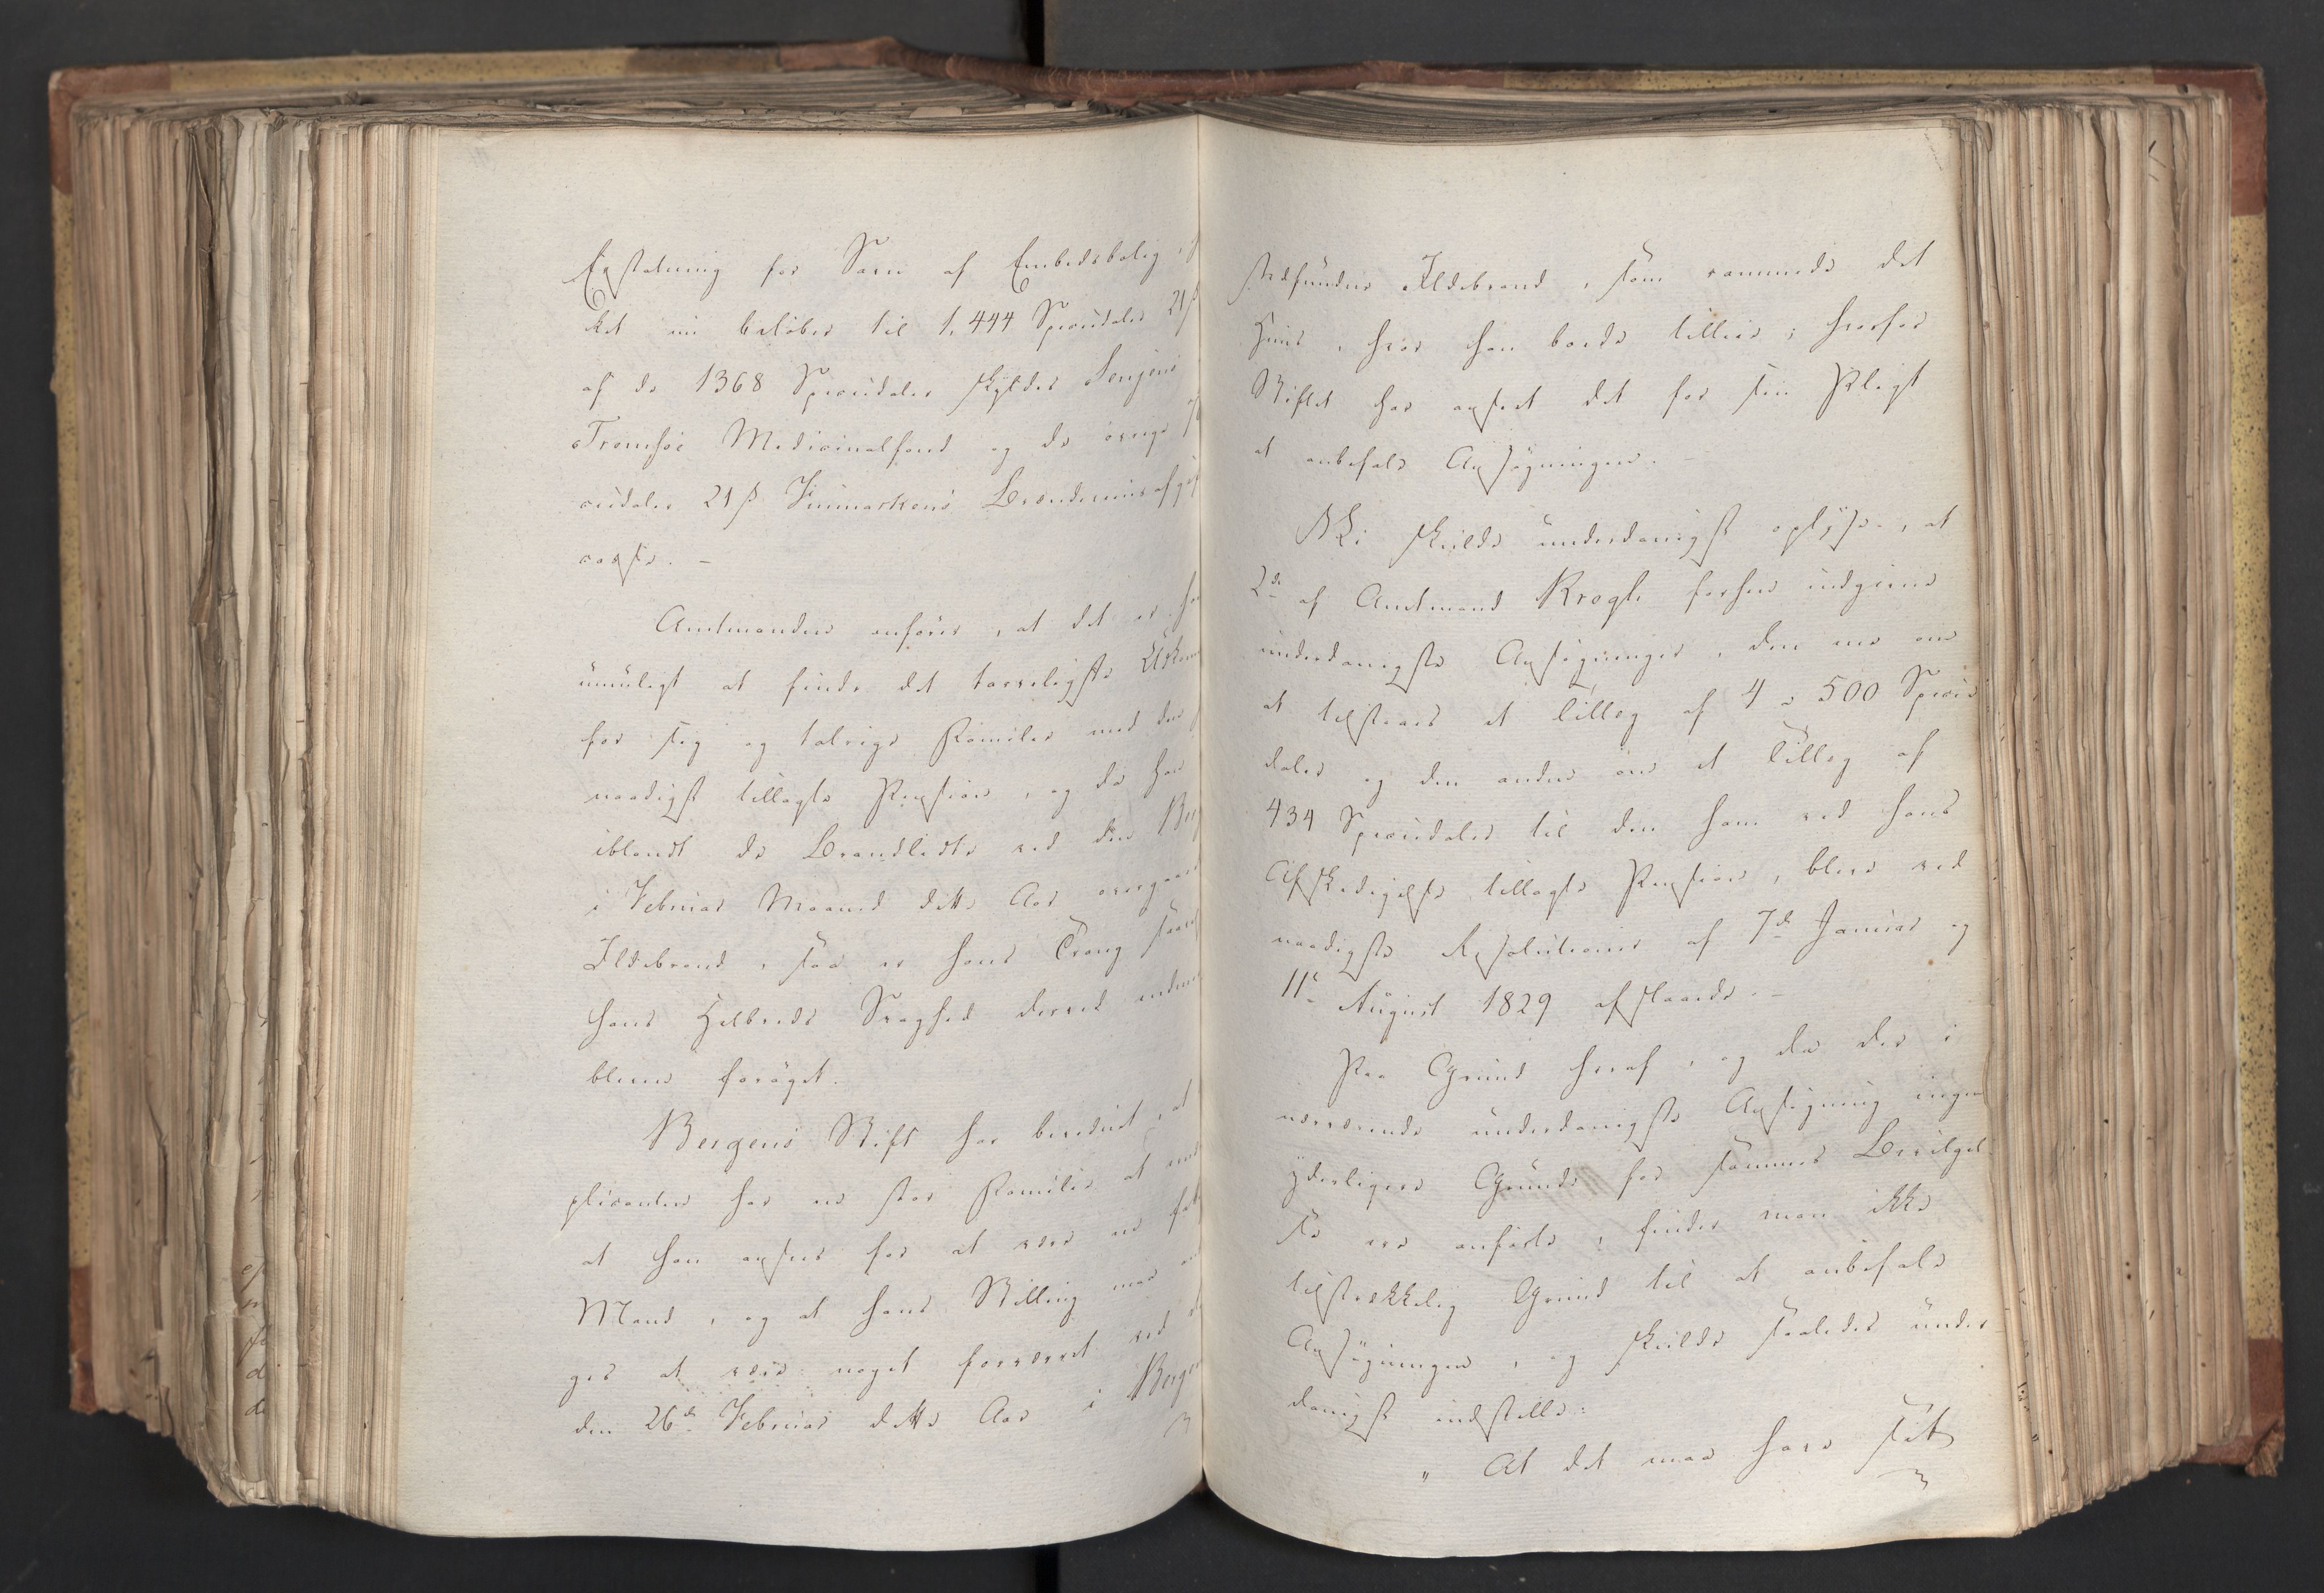 Erstatning for Savn af Embedsbolig, h
ket nu beløber til 1,444 Speciedaler 21 ß
af de 1368 Speciedaler skyldes Senjens
Tromsøe Medicinalfond og de øvrige
ciedaler 21 ß Finmarkens Brændeviinsafgifts
casse. –
Amtmanden anfører, at det er ham
umuligt at finde det tarveligste Udkom
for sig og talrige Familie med den
naadigst tillagte Pension, og da han
iblandt de Brandlidte ved den Ber
i Februar Maaned dette Aar overgaaede
Ildebrand, saa er hans Trang saavel
hans Helbreds Svaghed derved endnu
bleven forøget.
Bergens Stift har berettet, at
plicanten har en stor Familie at
at han ansees for at være en fat
Mand, og at hans Stilling maa an
ges at være noget forværret ved d
den 26de Februar dette Aar i Bergen
stedfundne Ildebrand, som rammede det
Huus, hvor han boede tilleie; hvorfor
Stiftet har anseet det for sin Pligt
at anbefale Ansøgningen. –
Vi skulde underdanigst oplyse, at
2de af Amtmand Krogh forhen indgivne
underdanigste Ansøgninger, den ene om
at tilstaaes et Tillæg af 4 a 500 Specie
daler og den anden om et Tillæg af
434 Speciedaler til den ham ved hans
Afskedigelse tillagte Pension, bleve ved
naadigste Resolutioner af 7de Januar og
11te August 1829 afslaaede. –
Paa Grund heraf, og da der i
nærværende underdanigste Ansøgning ingen
yderligere Grunde for sammes Bevilgel
se ere anførte, finder man ikke
tilstrækkelig Grund til at anbefale
Ansøgningen, og skulde saaledes under
danigst indstille:
" At det maa have sit